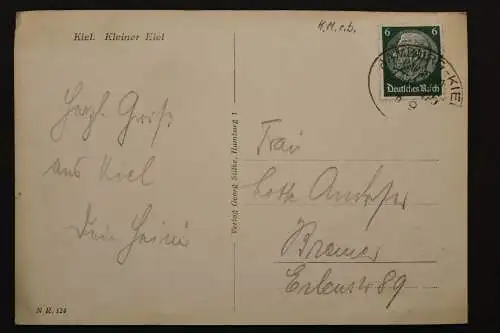 Kiel. Kleiner Kiel
H.M.r.b.
6 6
Deutsches Reich
KIEL
Herzl. Grüße
aus Kiel
Dein Heini
Verlag Georg Stilke, Hamburg 1
Frau
Lotte
Bremen
Erlenstr 89
N H. 124